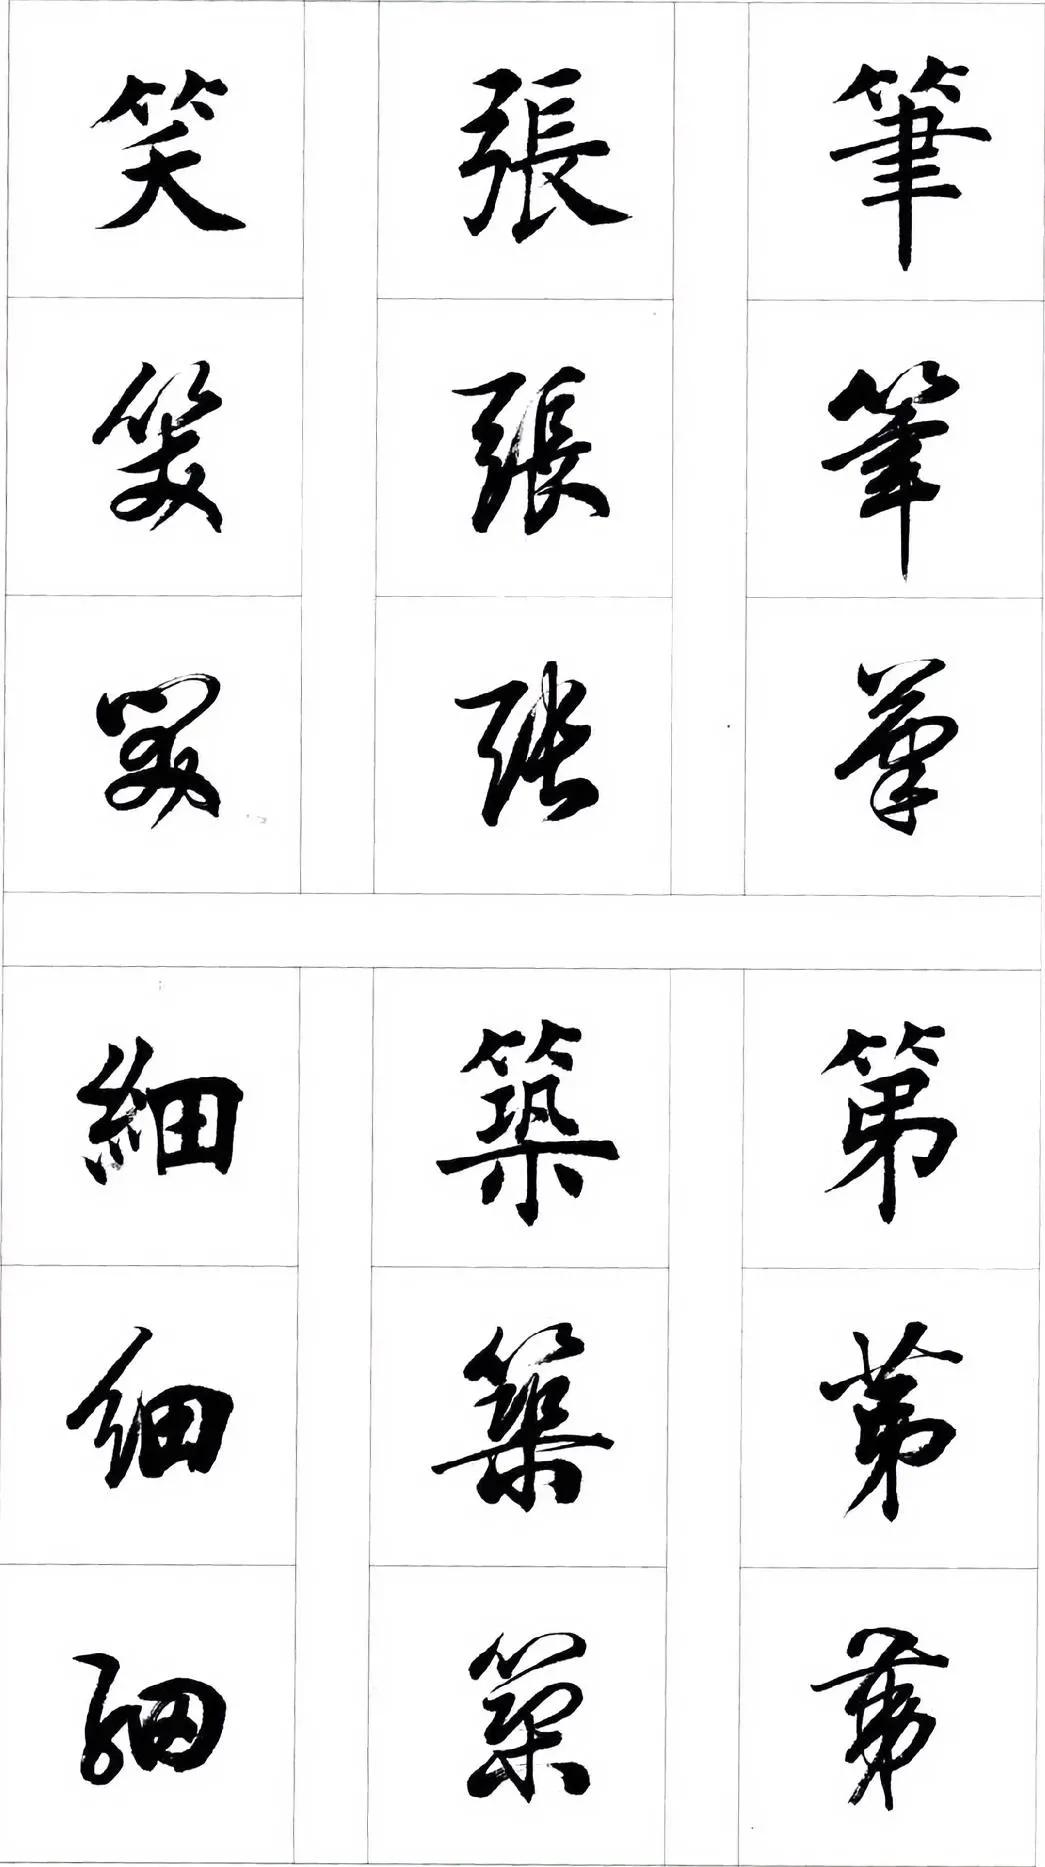 筆筆筆
張張張
笑笑笑
第第第
築築築
細細細